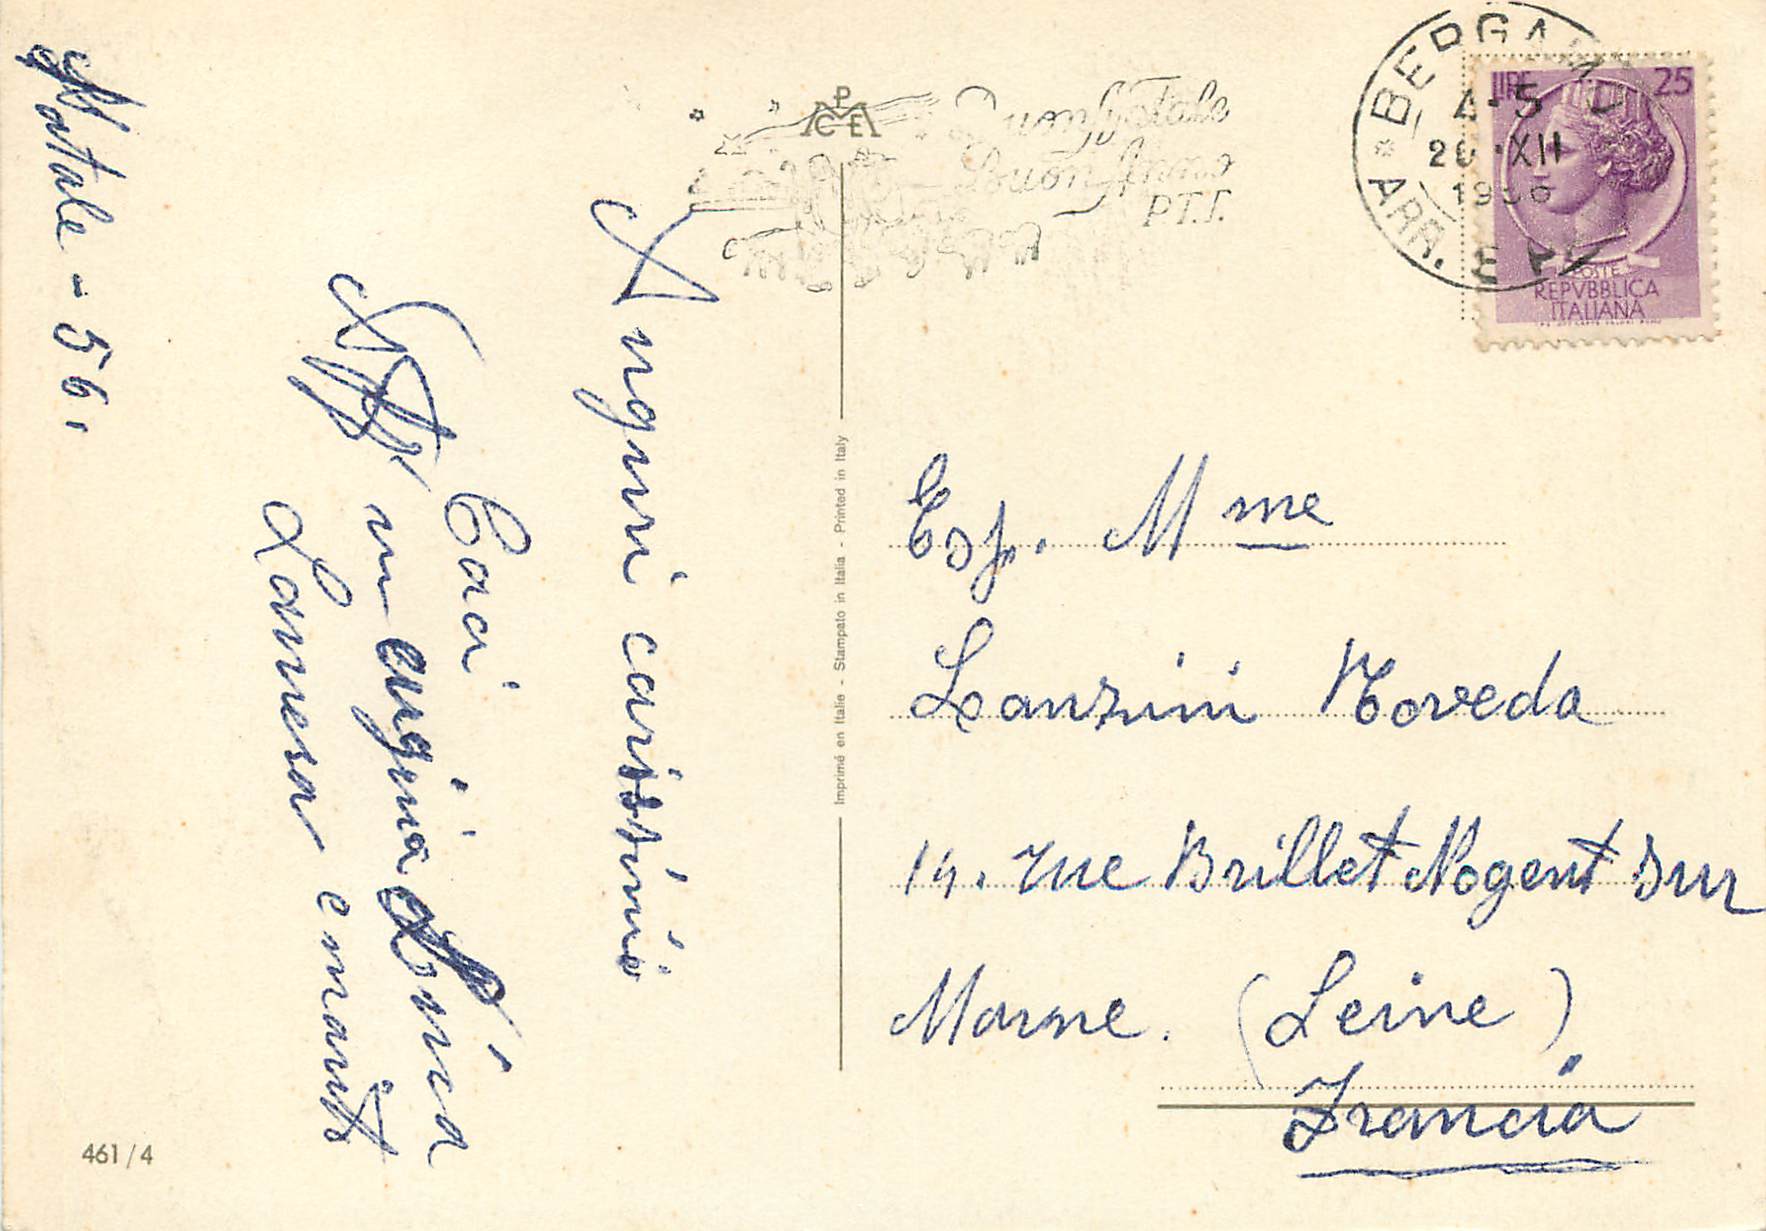 Natale - 56.
Auguri carissimi
Baci
Aff.
cugina Lina
e marito
Esp. Mme
Lanzini Noveda
14. rue Brillet Nogent sur
Marne. (Seine)
Francia
Buon Natale
Buon Anno
P.T.T.
P
C E
BERGAMO
ARR.
4-5
XII
1956
LIRE 25
POSTE
REPVBBLICA
ITALIANA
Imprimé en Italie - Stampato in Italia - Printed in Italy
461/4